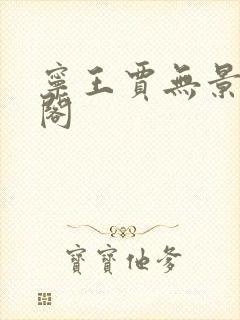 寧王賈無景
閣
寶寶他爹